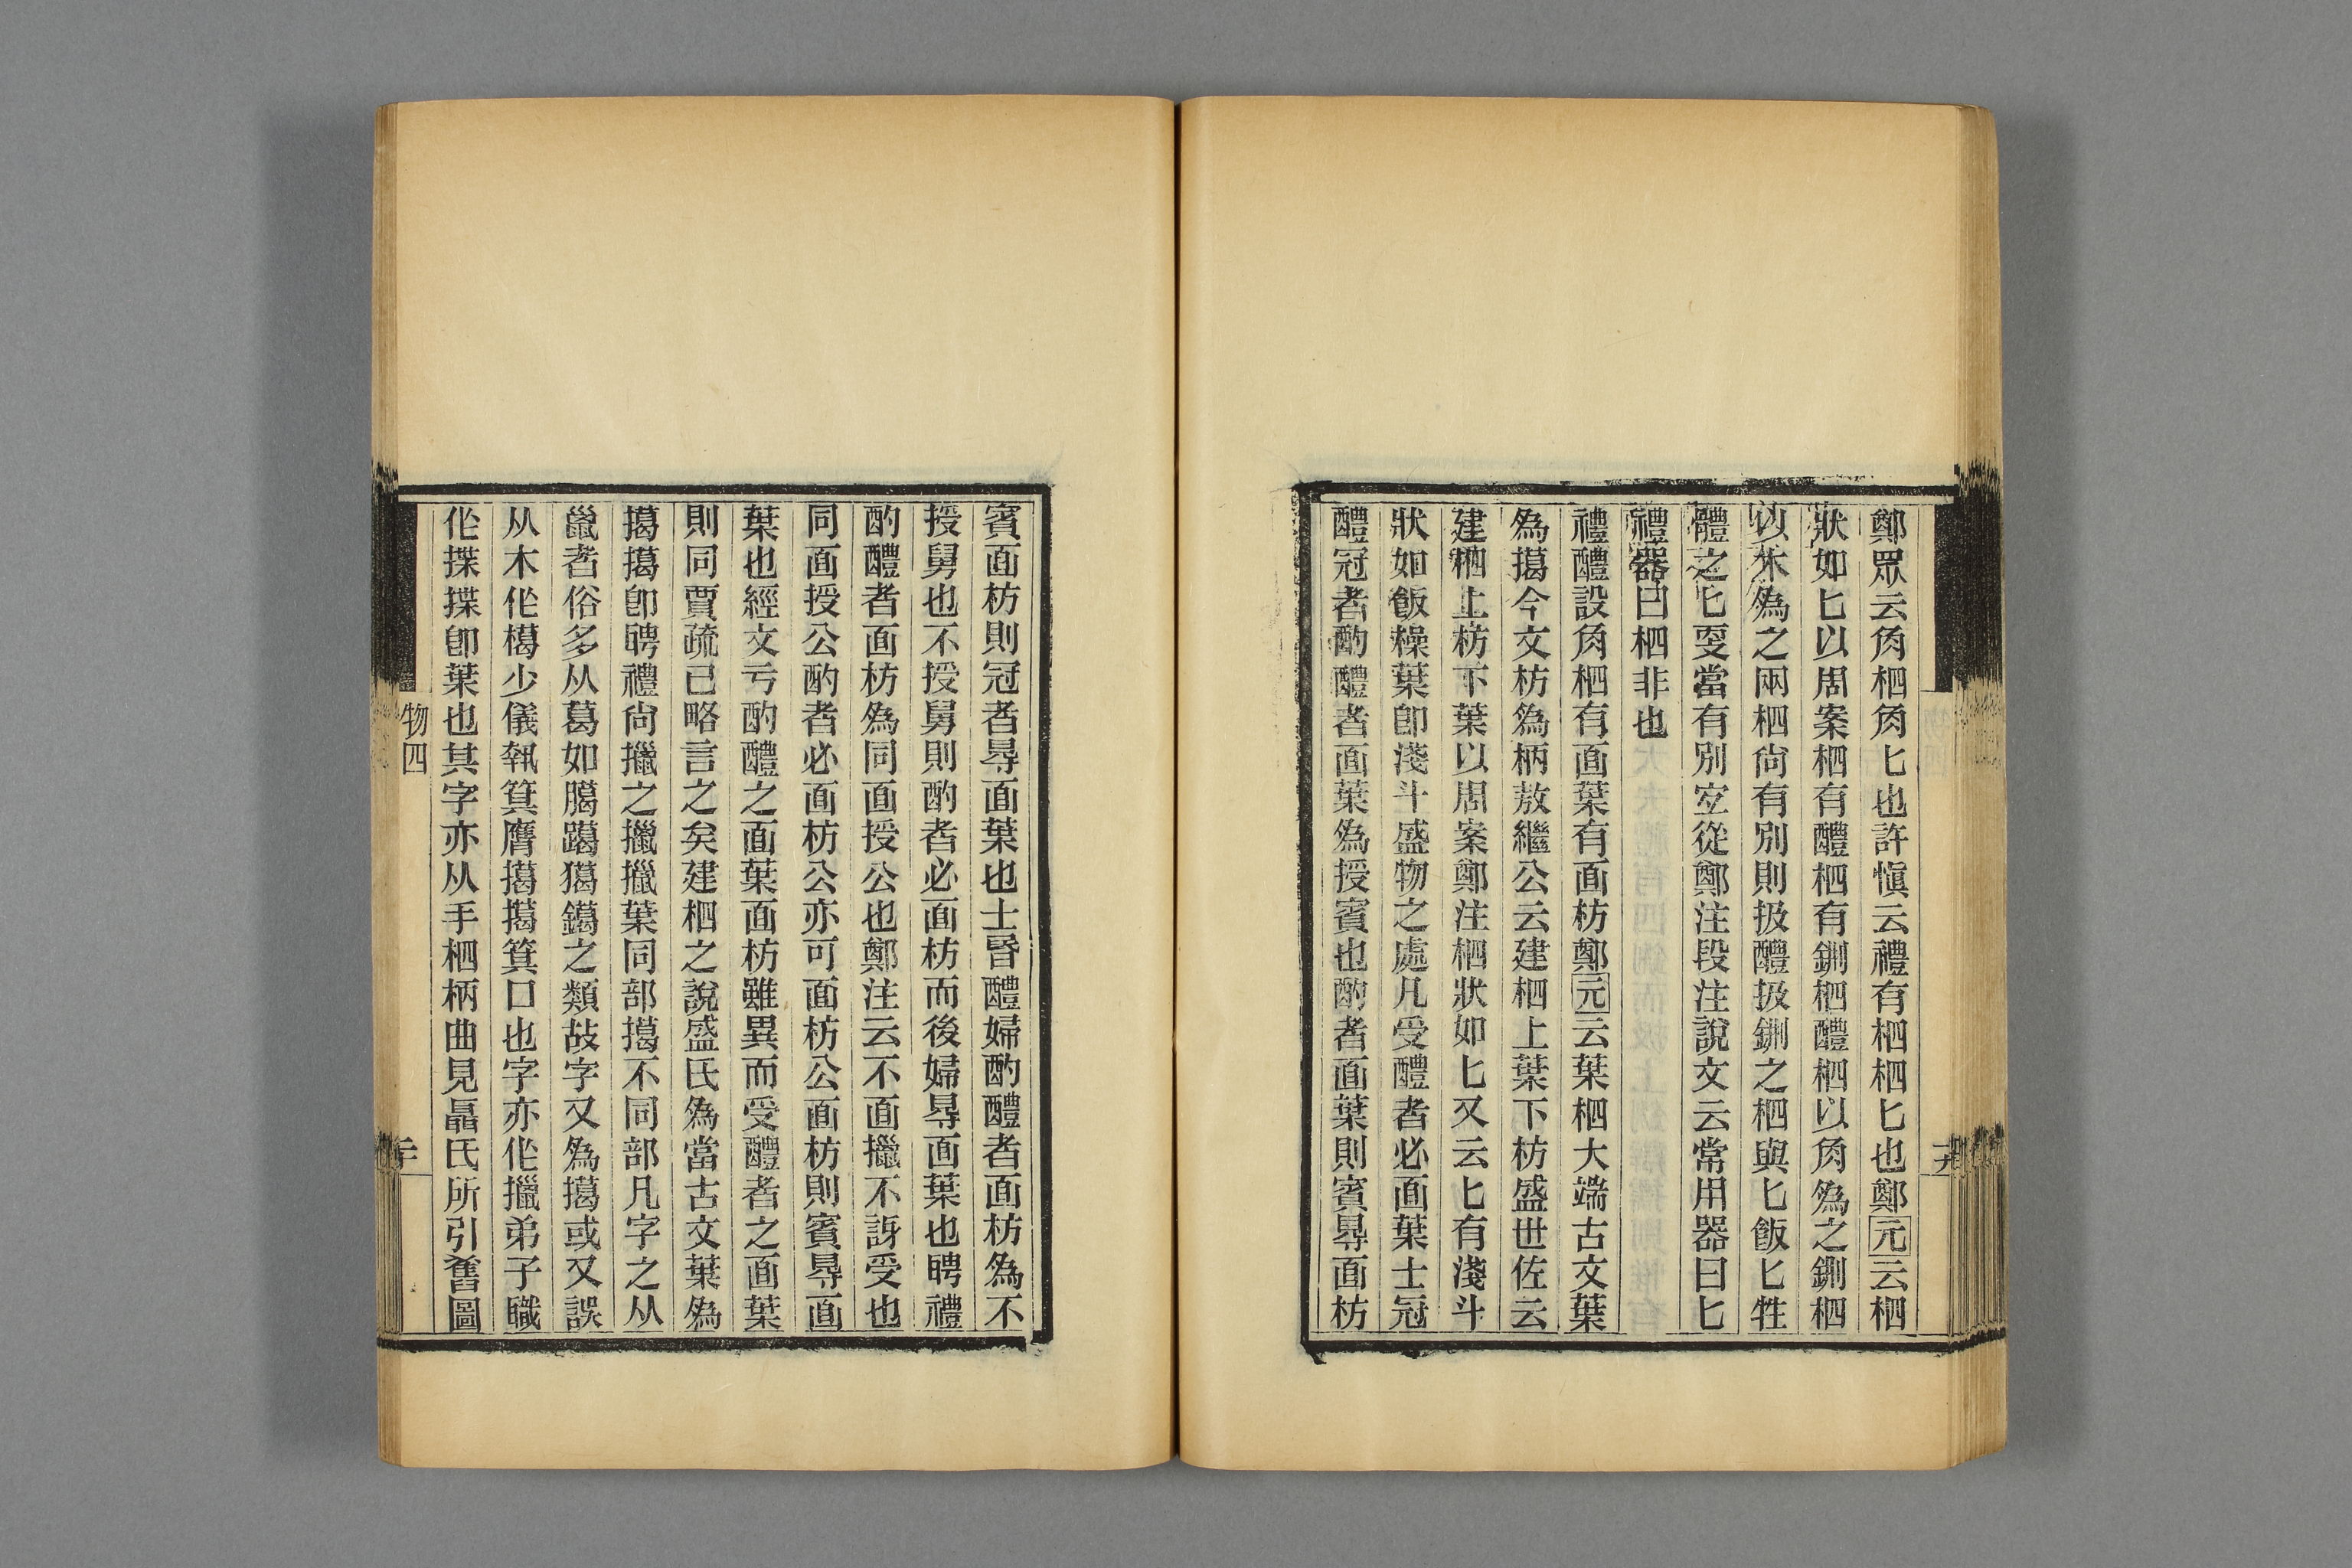 鄭眾云角柶角匕也許愼云禮有柶柶匕也鄭元云柶
狀如匕以周案柶有醴柶有鉶柶醴柶以角爲之鉶柶
以木爲之兩柶尙有別則扱醴扱鉶之柶與匕飯匕牲
體之匕㪅當有別宐從鄭注段注說文云常用器曰匕
禮器曰柶非也
禮醴設角柶有面葉有面枋鄭元云葉柶大端古文葉
爲擖今文枋爲柄敖繼公云建柶上葉下枋盛世佐云
建柶上枋下葉以周案鄭注柶狀如匕又云匕有淺斗
狀如飯橾葉卽淺斗盛物之處凡受醴者必面葉士冠
醴冠者酌醴者面葉爲授賓也酌者面葉則賓㝵面枋
賓面枋則冠者㝵面葉也士昬醴婦酌醴者面枋爲不
授舅也不授舅則酌者必面枋而後婦㝵面葉也聘禮
酌醴者面枋爲同面授公也鄭注云不面擸不訝受也
同面授公酌者必面枋公亦可面枋公面枋則賓㝵面
葉也經文亏酌醴之面葉面枋雖異而受醴者之面葉
則同賈疏已略言之矣建柶之說盛氏爲當古文葉爲
擖擖卽聘禮尙擸之擸擸葉同部擖不同部凡字之从
巤者俗多从葛如臈躐獦鑞之類故字又爲擖或又誤
从木作楬少儀執箕膺擖擖箕口也字亦作擸弟子職
作揲揲卽葉也其字亦从手柶柄曲見聶氏所引舊圖
物四